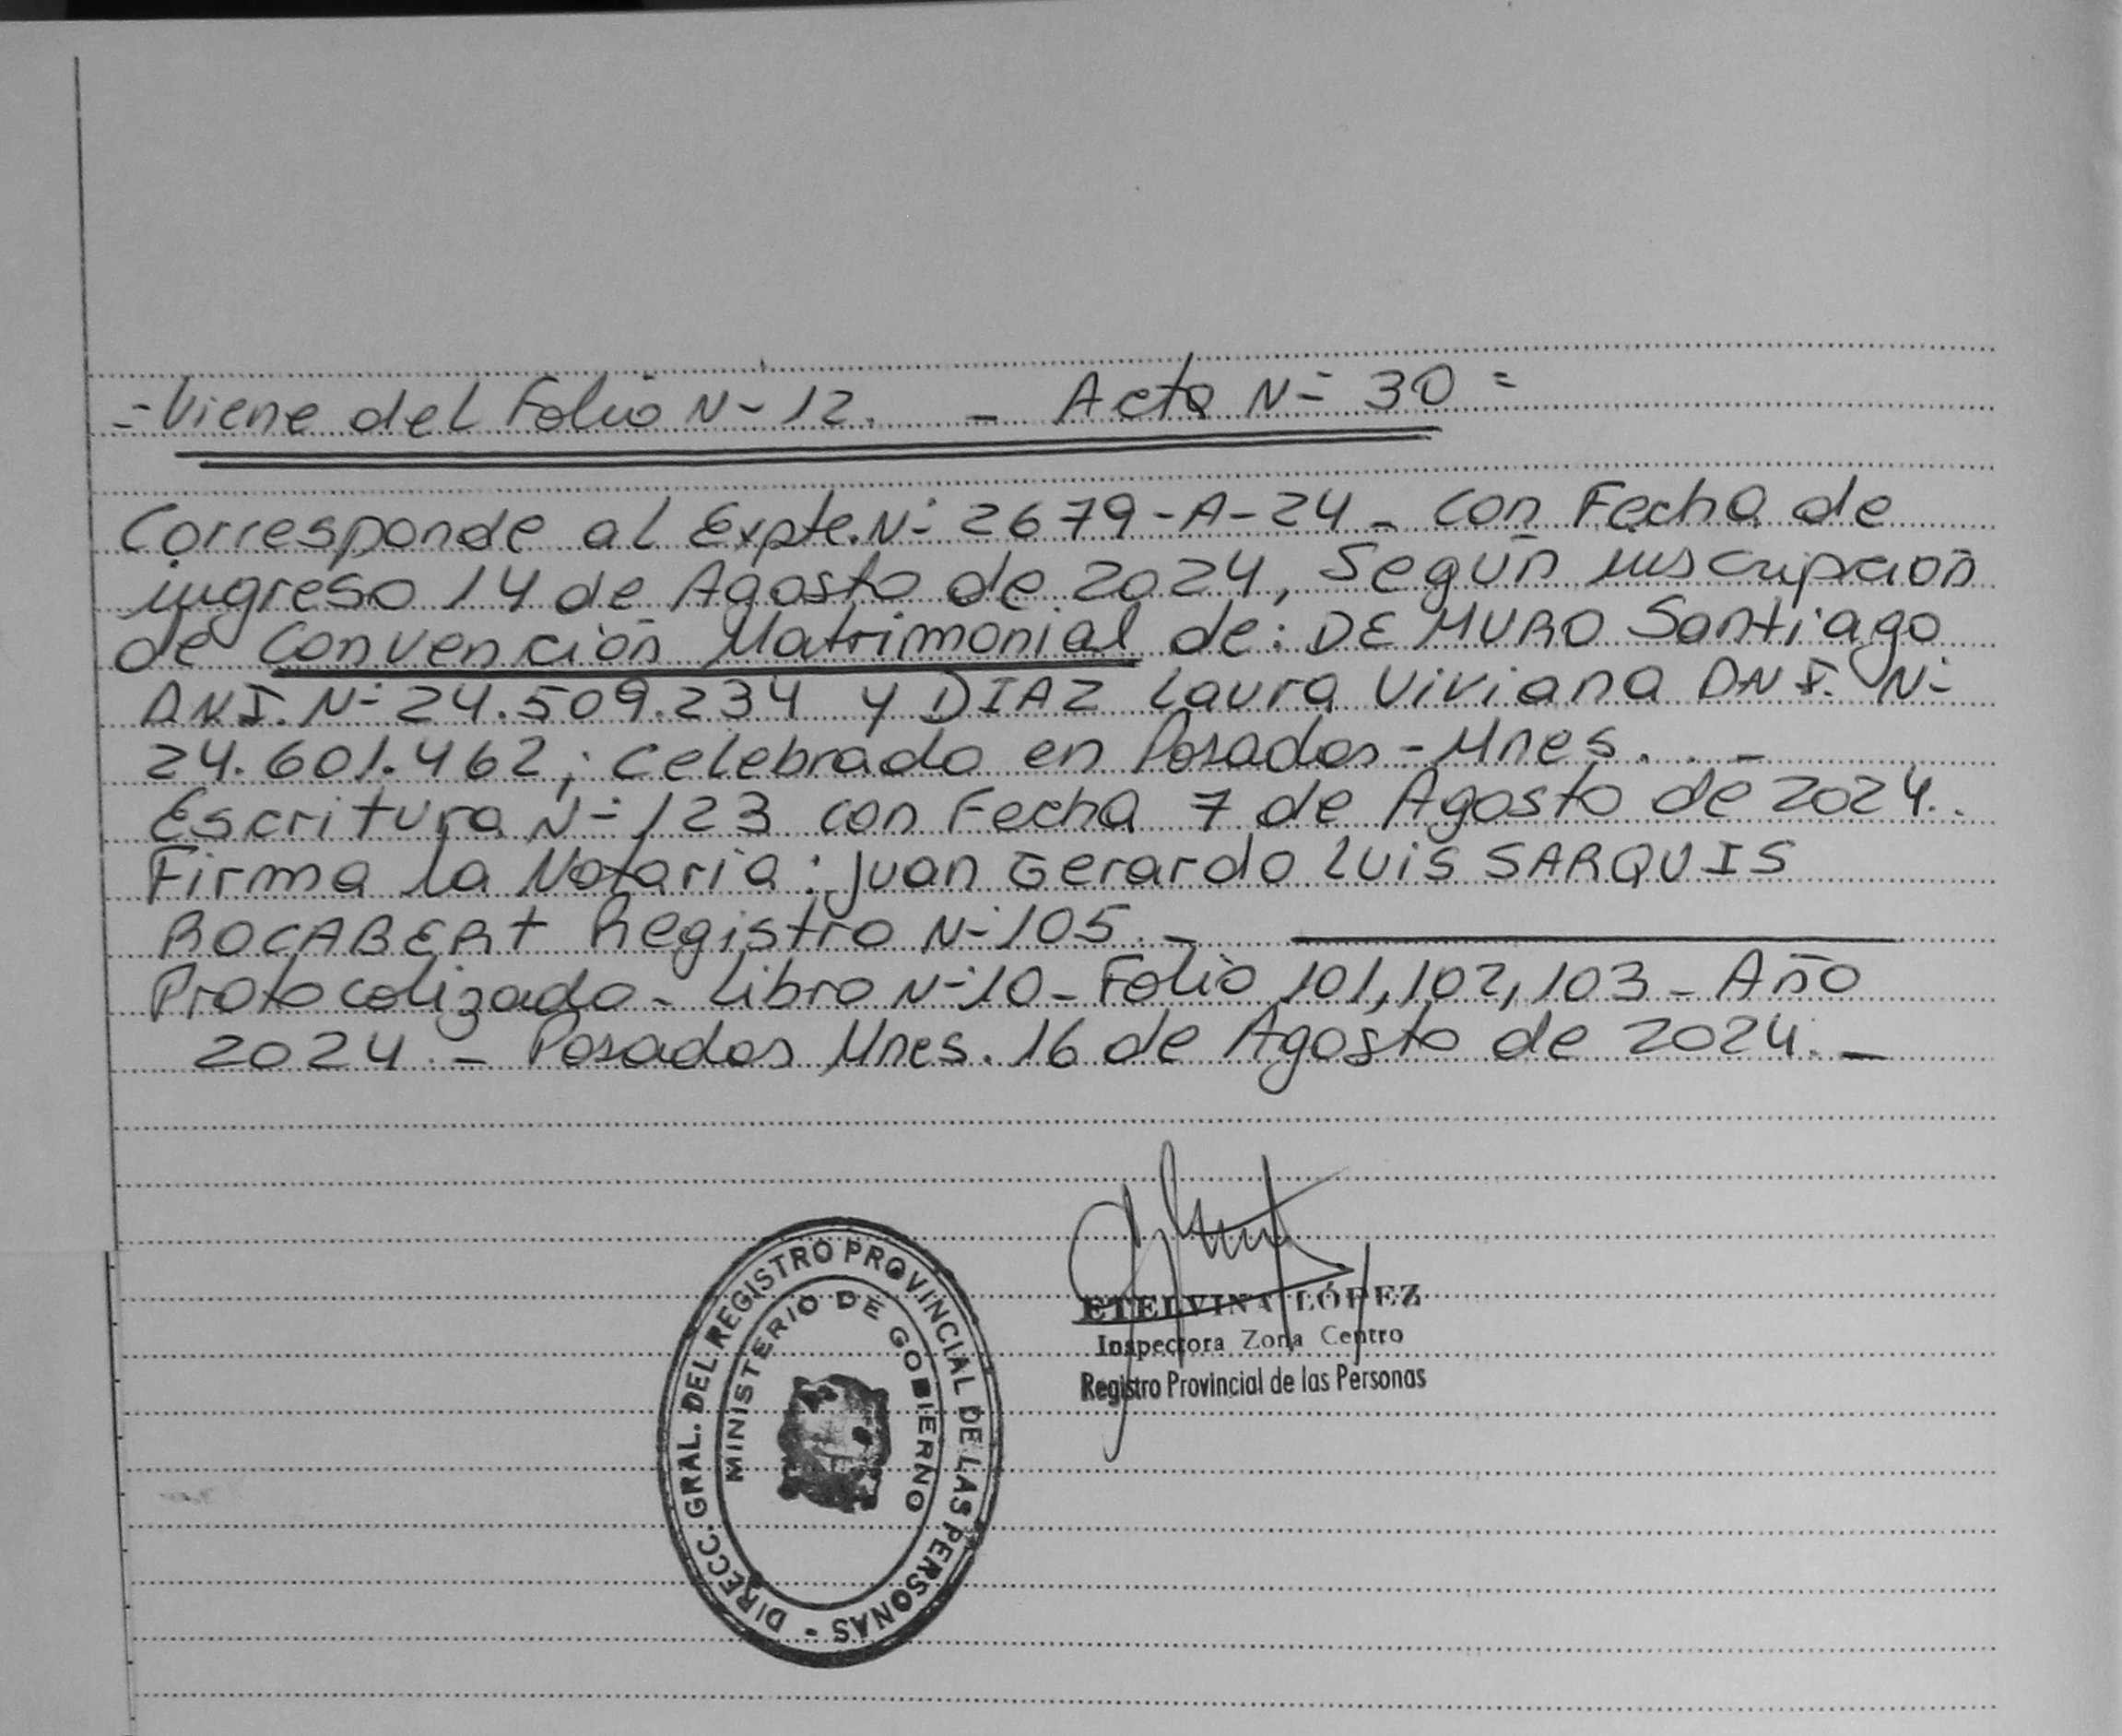 - Viene del Folio N- 12. - Acta N- 30 =
Corresponde al Expte. N- 2679-A-24 - con Fecha de
ingreso 14 de Agosto de 2024, Según inscripción
de Convención Matrimonial de: DE MURO Santiago
DNI. N- 24.509.234 y DIAZ Laura Viviana DNI. N-
24.601.462; celebrado en Posadas - Mnes. . -
Escritura N- 123 con Fecha 7 de Agosto de 2024..
Firma la Notaria: Juan Gerardo Luis SARQUIS
ROCABERT Registro N- 105. -
Protocolizado - Libro N- 10 - Folio 101, 102, 103 - Año
2024. - Posadas Mnes. 16 de Agosto de 2024. -
DIRECC. GRAL. DEL REGISTRO PROVINCIAL DE LAS PERSONAS -
MINISTERIO DE GOBIERNO
ETELVINA LÓPEZ
Inspectora Zona Centro
Registro Provincial de las Personas